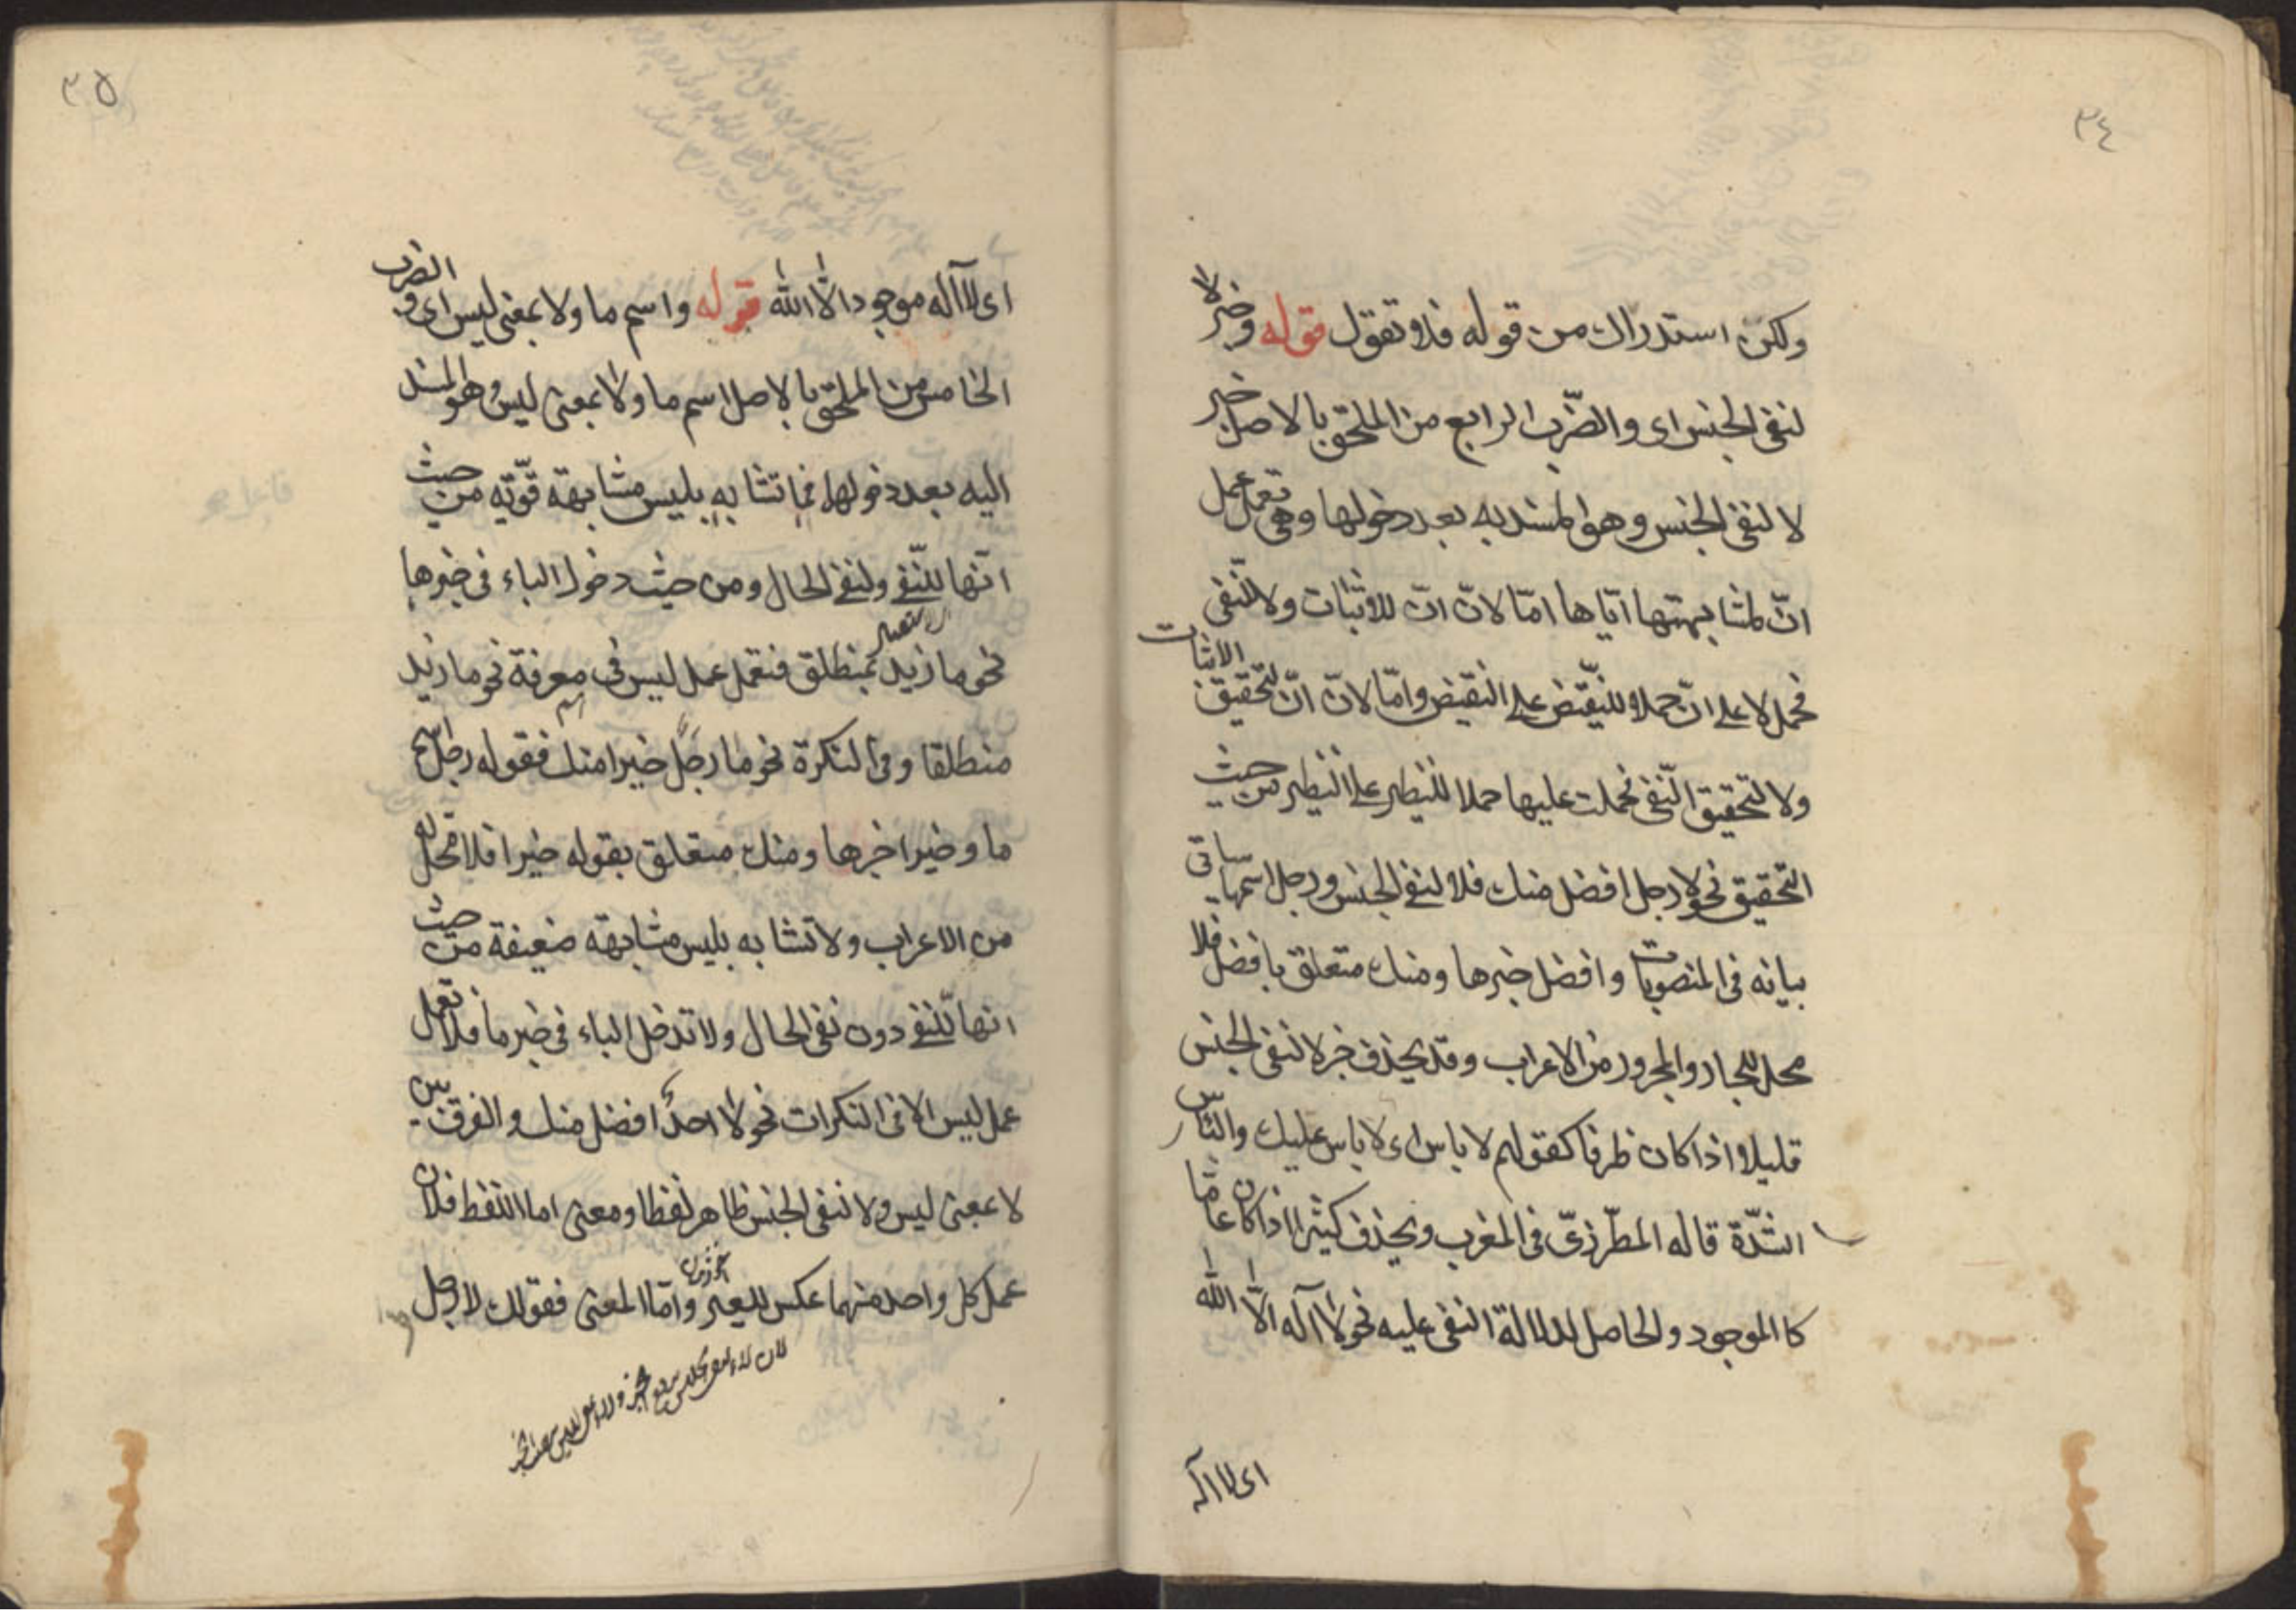 ٣٤
ولكن استدراك من قوله فلا تقول قوله وخبر لا
لنفى الجنس اى والضّرب الرابع من الملحق بالاصل خبر
لا لنفى الجنس وهو المسند به بعد دخولها وهى تعمل عمل
انّ لمشابهتها ايّاها امّا لانّ انّ للاثبات ولا للنّفى
فحمل لا على انّ حملا للنّقيض على النقيض وامّا لانّ انّ لتحقيق الاثبات
ولا لتحقيق النّفى فحملت عليها حملا للنّظير على النّظير من حيث
التحقيق نحو لا رجل افضل منك فلا لنفى الجنس ورجل اسمها ياتى
بيانه فى المنصوبات وافضل خبرها ومنك متعلق بافضل فلا
محل للجار والمجرور من الاعراب وقد يحذف خبر لا لنفى الجنس
قليلا اذا كان ظرفا كقولهم لا باس اى لا باس عليك والبأس
الشدّة قاله المطرّزىّ فى المغرب ويحذف كثيرا اذا كان عامّا
كالموجود والحاصل لدلالة النفى عليه نحو لا اله الّا الله
اى لا اله
٣٥
اى لا اله موجود الّا الله قوله واسم ما ولا بمعنى ليس اى والضرب
الخامس من الملحق بالاصل اسم ما ولا بمعنى ليس وهو المسند
اليه بعد دخولها فما تشابه بليس مشابهة قويّة من حيث
انّها للنّفى ولنفى الحال ومن حيث دخول الباء فى خبرها
نحو ما زيد بمنطلق فتعمل عمل ليس فى معرفة نحو ما زيد
منطلقا وفى النكرة نحو ما رجل خيرا منك فقوله رجل اسم
ما وخيرا خبرها ومنك متعلق بقوله خيرا فلا محل له
من الاعراب ولا تشابه بليس مشابهة ضعيفة من حيث
انها للنّفى دون نفى الحال ولا تدخل الباء فى خبرها فلا تعمل
عمل ليس الا فى النكرات نحو لا احدٌ افضل منك والفرق بين
لا بمعنى ليس ولا لنفى الجنس ظاهر لفظا ومعنى اما اللفظ فلان
عمل كل واحد منهما عكس للعير وامّا المعنى فقولك لا رجل